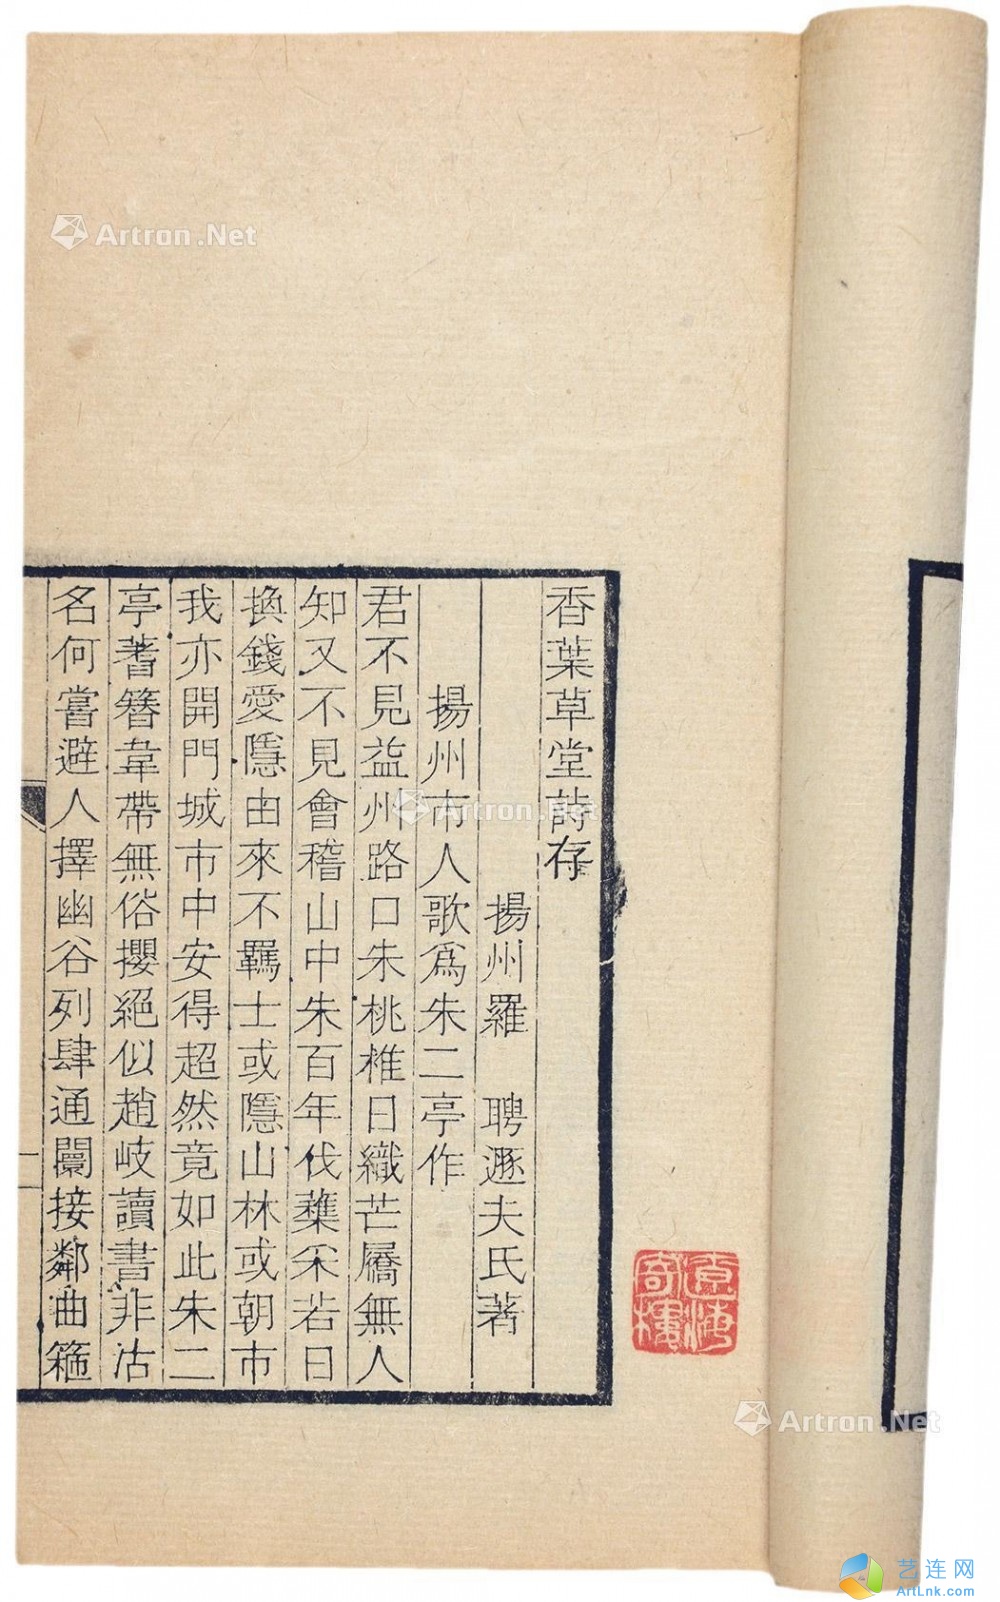 香葉草堂詩存
揚州羅　聘遯夫氏著
揚州市人歌爲朱二亭作
君不見益州路口朱桃椎日織芒屩無人
知又不見會稽山中朱百年伐蘽采若日
換錢愛隱由來不羈士或隱山林或朝市
我亦開門城市中安得超然竟如此朱二
亭耆簪韋帶無俗攖絕似趙岐讀書非沽
名何嘗避人擇幽谷列肆通闤接鄰曲箍
Artron.Net
Artron.Net
Artron.Net
艺连网
ArtLnk.com